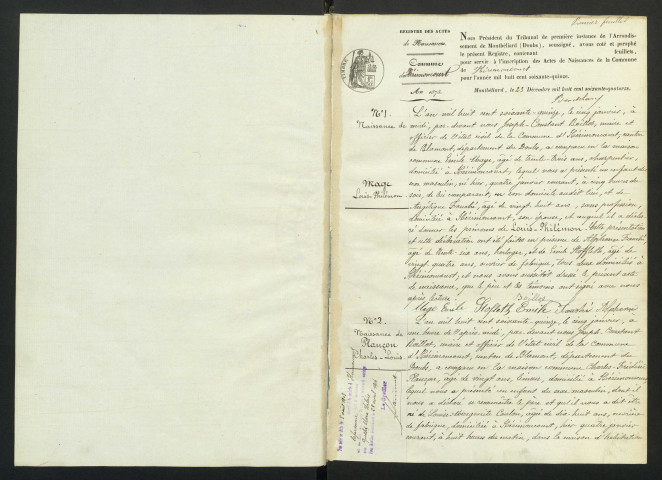 Premier feuillet
REGISTRE DES ACTES
de Naissances
Commune
d'Hérimoncourt
An 1875
TIMBRE
Nous Président du Tribunal de première instance de l'Arrondis-
sement de Montbéliard (Doubs), soussigné, avons coté et paraphé
le présent Registre, contenant feuillets,
pour servir à l'inscription des Actes de Naissances de la Commune
de Hérimoncourt
pour l'année mil huit cent soixante-quinze.
Montbéliard, le 23 Décembre mil huit cent soixante-quatorze.
N° 1.
Naissance de
Mage
Louis Philémon
L'an mil huit cent soixante-quinze, le cinq janvier, à
midi, par-devant nous Joseph-Constant Boillot, maire et
officier de l'état civil de la Commune d'Hérimoncourt, canton
de Blamont, département du Doubs, a comparu en la maison
commune Emile Mage, âgé de trente-trois ans, charpentier,
domicilié à Hérimoncourt, lequel nous a présenté un enfant du
sexe masculin, né hier, quatre janvier courant, à cinq heures du
soir, de lui comparant, en son domicile audit lieu, et de
âgée de vingt huit ans, sans profession,
domiciliée à Hérimoncourt, son épouse, et auquel il a décla-
ré donner les prénoms de Louis-Philémon. Cette présentation
et cette déclaration ont été faites en présence de Alphonse
âgé de trente-six ans, horloger, et de Emile Stoffleth, âgé de
vingt-quatre ans, ouvrier de fabrique, tous deux domiciliés à
Hérimoncourt, et nous avons aussitôt dressé le présent acte
de naissance, que le père et les témoins ont signé avec nous
après lecture. Boillot
Mage Emile Stoffleth Emile Alphonse
N° 2.
Naissance de
Plançon
Charles-Louis.
L'an mil huit cent soixante-quinze, le cinq janvier, à
une heure de l'après-midi, par-devant nous Joseph Constant
Boillot, maire et officier de l'état civil de la Commune
d'Hérimoncourt, canton de Blamont, département du
Doubs, a comparu en la maison commune Charles-Frédéric
Plançon, âgé de vingt ans, domicilié à Hérimoncourt,
lequel nous a présenté un enfant du sexe masculin, dont il
nous a déclaré se reconnaître le père et qu'il nous a dit être
né de Louise-Marguerite âgée de dix-huit ans, ouvrière
de fabrique, domiciliée à Hérimoncourt, hier quatre janvier
courant, à huit heures du matin, dans la maison d'habitation